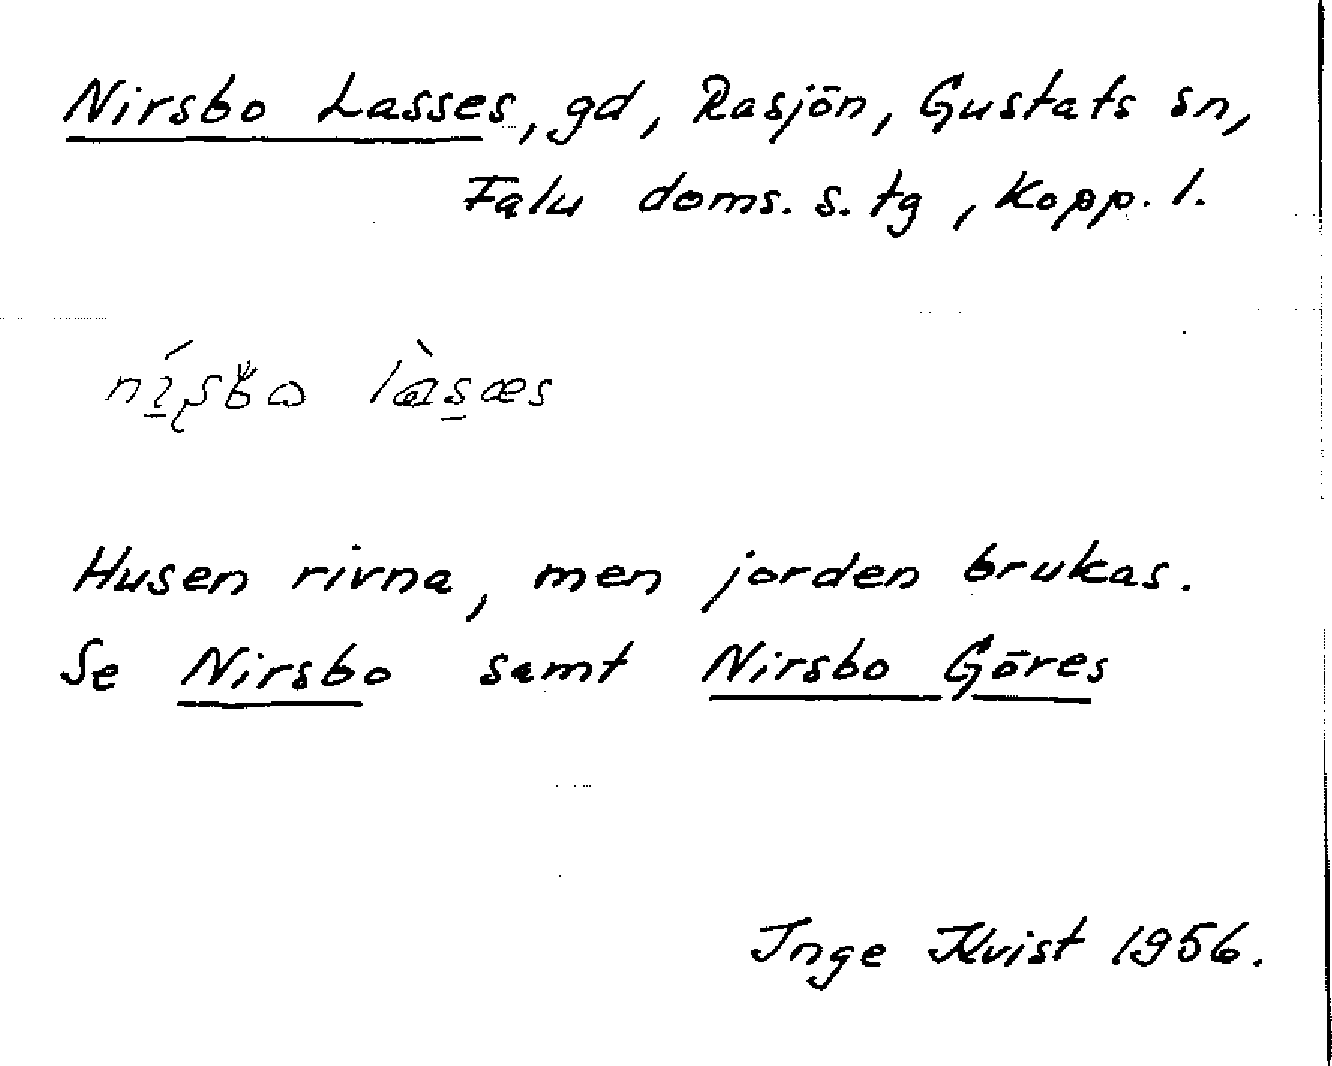 Nirsbo Lasses, gd, Rasjön, Gustafs sn,
Falu doms. s. tg, Kopp. l.
Husen rivna, men jorden brukas.
Se Nirsbo samt Nirsbo Göres
Inge Kvist 1956.